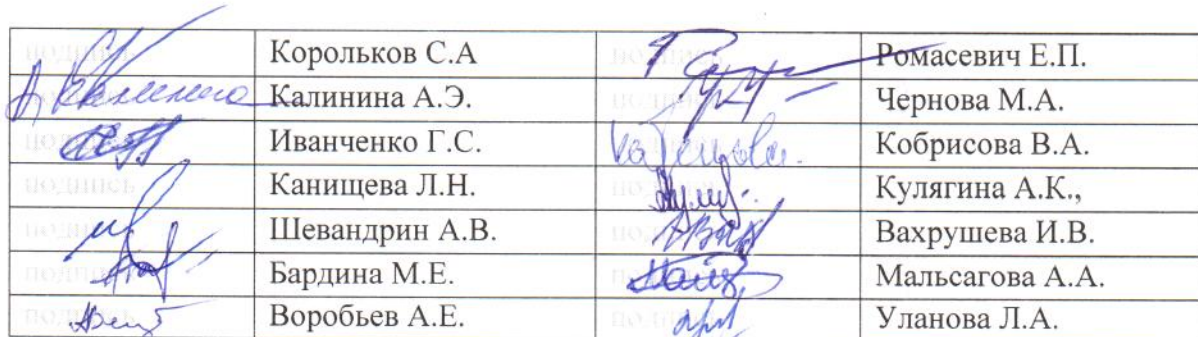 подпись Корольков С.А подпись Ромасевич Е.П.
Калинина А.Э. подпись Чернова М.А.
подпись Иванченко Г.С. Кобрисова В.А.
подпись Канищева Л.Н. подпись Кулягина А.К.,
подпись Шевандрин А.В. подпись Вахрушева И.В.
подпись Бардина М.Е. подпись Мальсагова А.А.
подпись Воробьев А.Е. подпись Уланова Л.А.